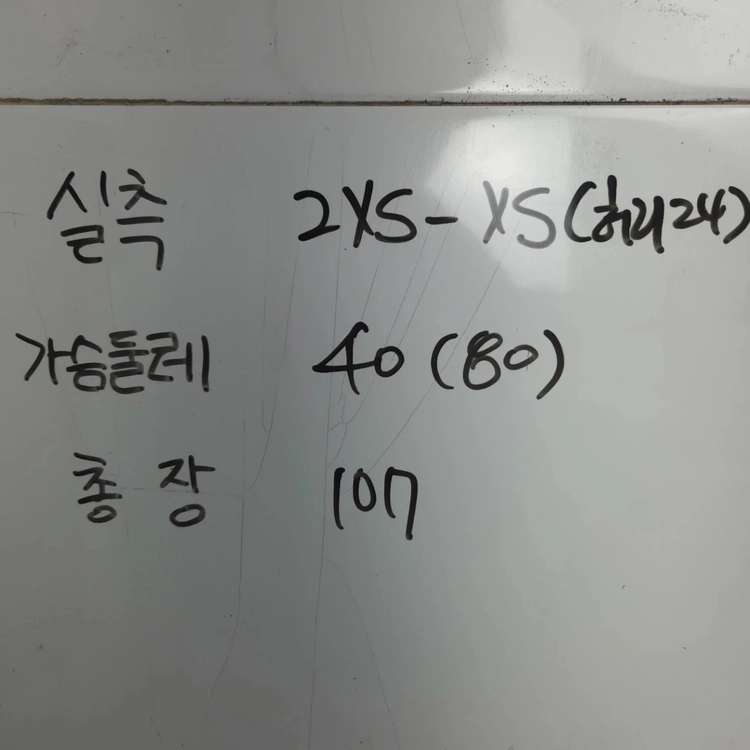 실측 2XS-XS(허리24)
가슴둘레 40(80)
총장 107